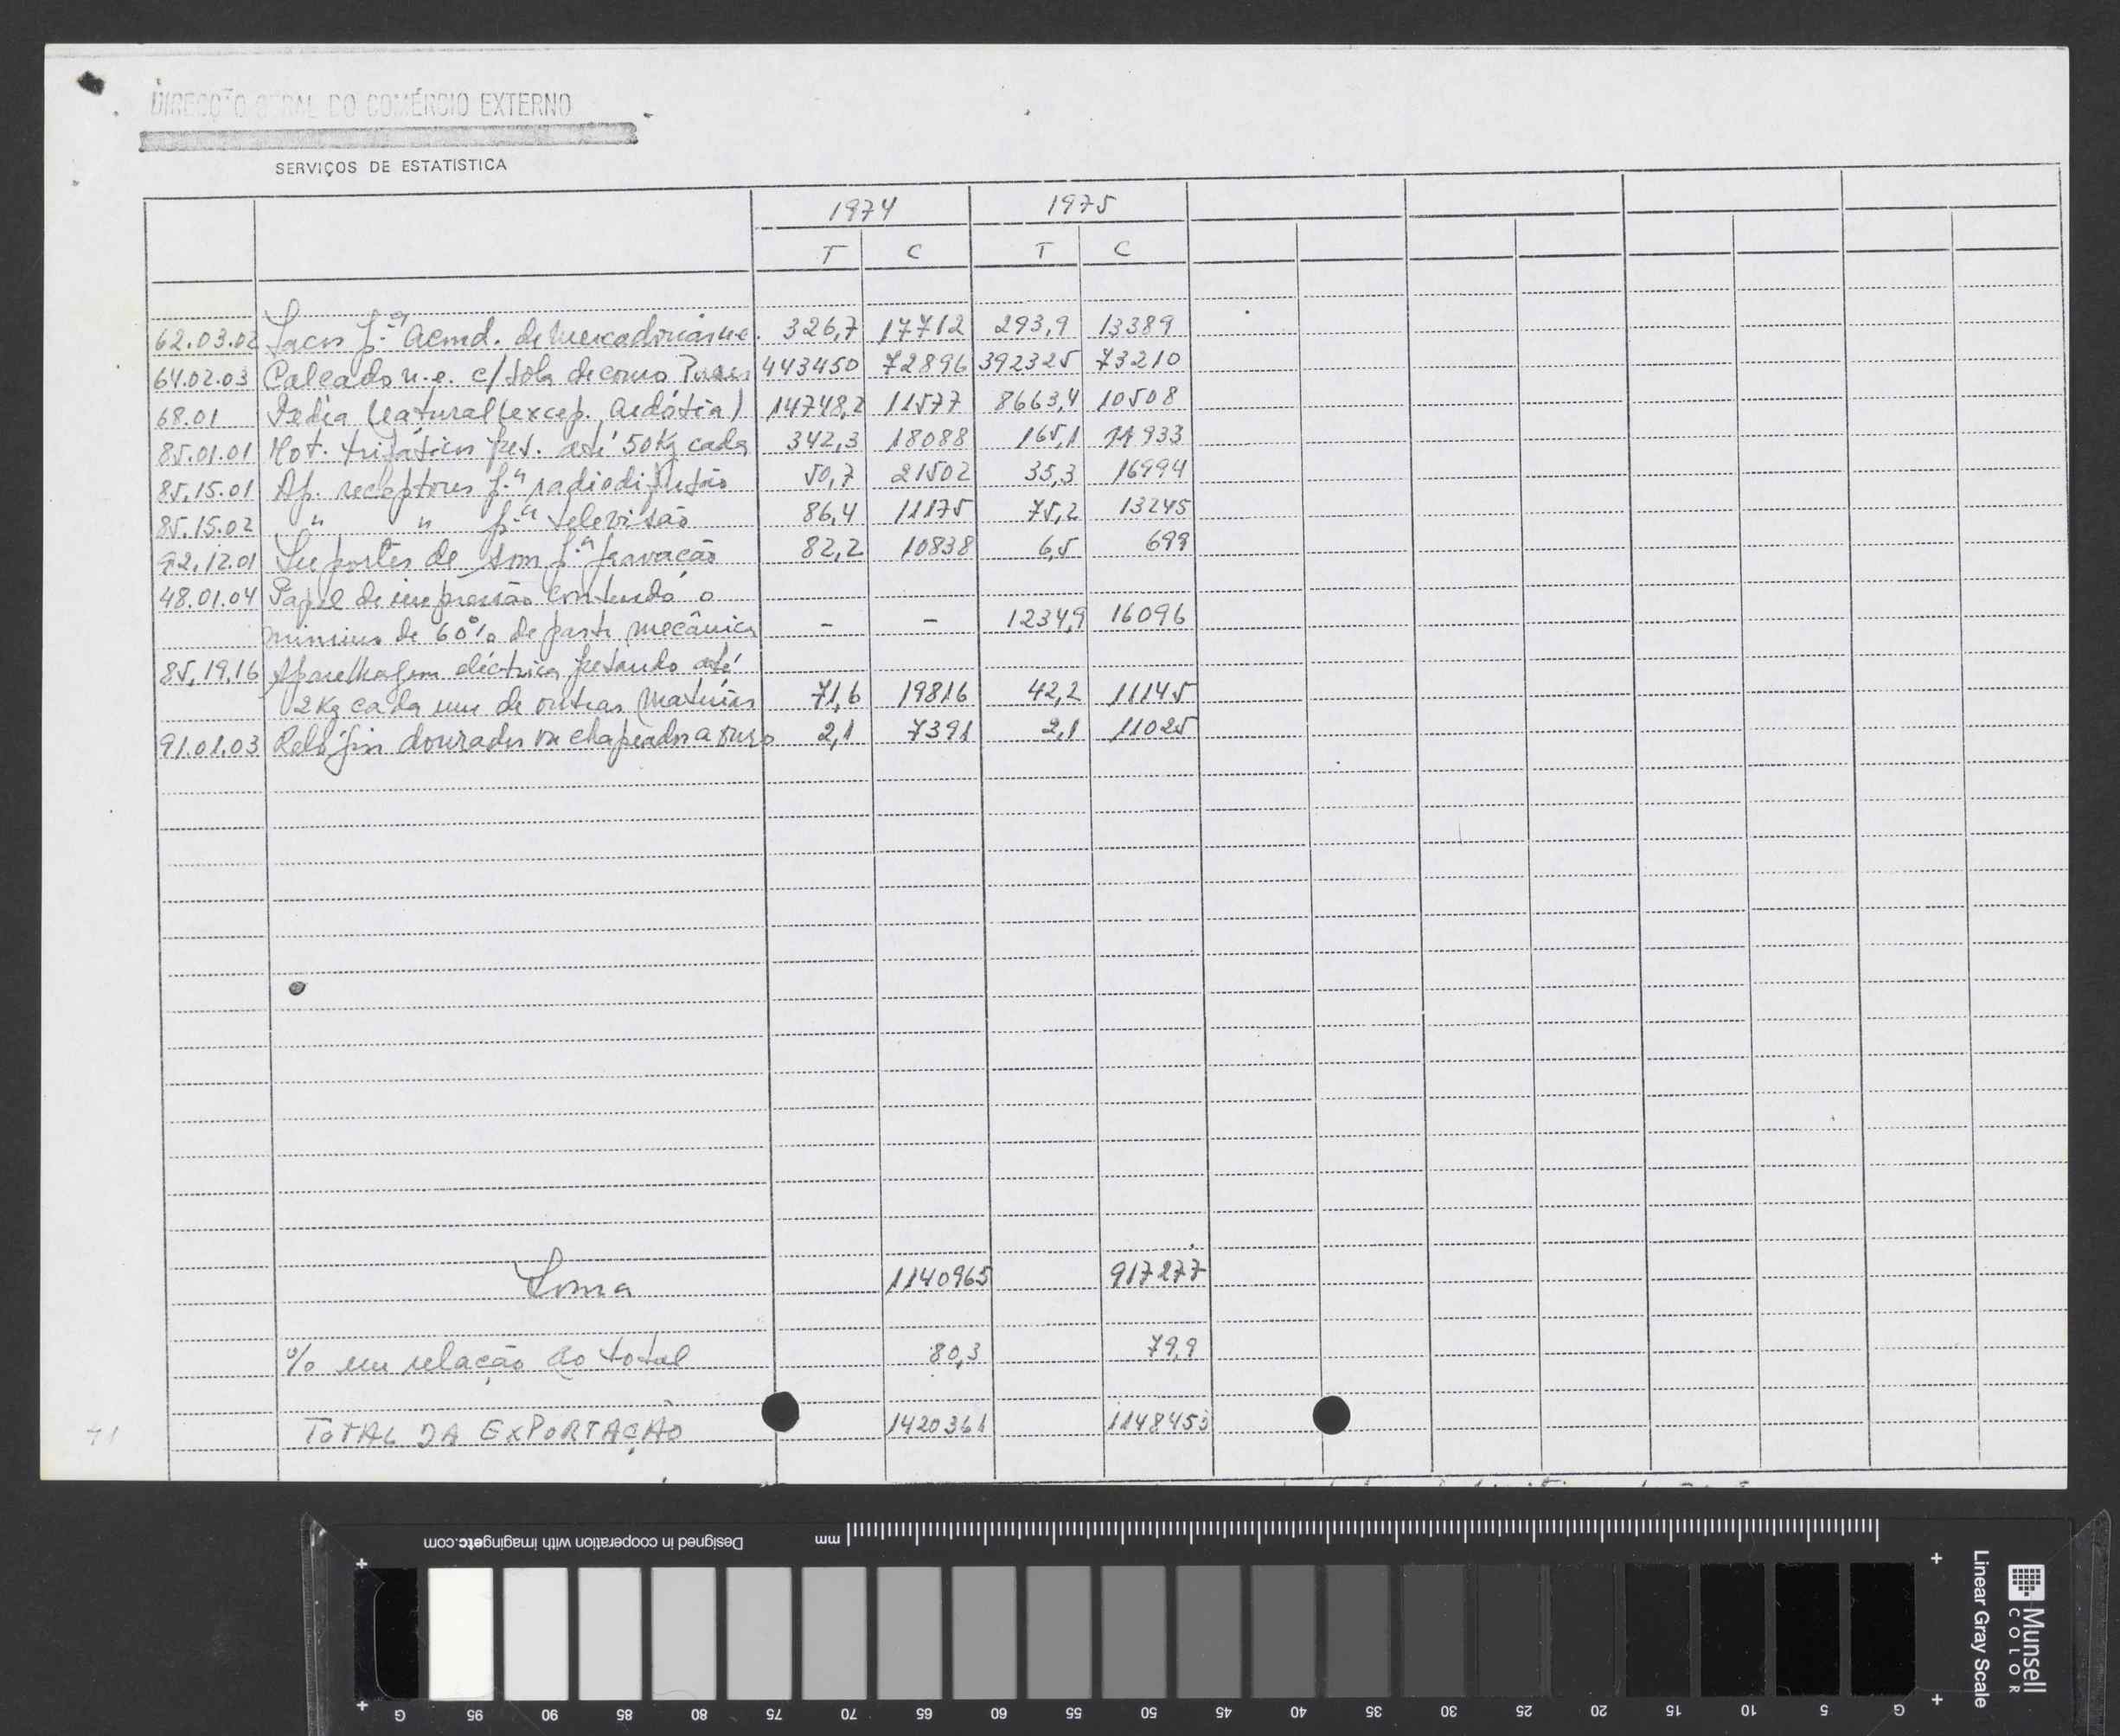 DIRECÇÃO GERAL DO COMÉRCIO EXTERNO
SERVIÇOS DE ESTATISTICA
1974 1975
T C T C
62.03.02 Sacos p.ª acmd. de mercadorias n.e. 326,7 17712 293,9 13389
64.02.03 Calçado n.e. c/ sola de couro Pares 443450 72896 392325 73210
68.01 Pedra natural (excep. ardósia) 14748,2 11577 8663,4 10508
85.01.01 Mot. trifásicos pes. até 50 Kg cada 342,3 18088 165,1 11933
85.15.01 Ap. receptores p.ª radiodifusão 50,7 21502 35,3 16994
85.15.02 " " p.ª televisão 86,4 11175 75,2 13245
92.12.01 Suportes de som p.ª gravação 82,2 10838 6,5 699
48.01.04 Papel de impressão contendo o
minimo de 60% de pasta mecânica - - 1234,9 16096
85.19.16 Aparelhagem eléctrica pesando até
2 Kg cada um de outras matérias 71,6 19816 42,2 11145
91.01.03 Relógios dourados ou chapeados a ouro 2,1 7391 2,1 11025
Soma 1140965 917277
% em relação ao total 80,3 79,9
TOTAL DA EXPORTAÇÃO 1420361 1148453
Designed in cooperation with imagingetc.com
mm
G 95 90 85 80 75 70 65 60 55 50 45 40 35 30 25 20 15 10 5 G
Linear Gray Scale
Munsell
COLOR